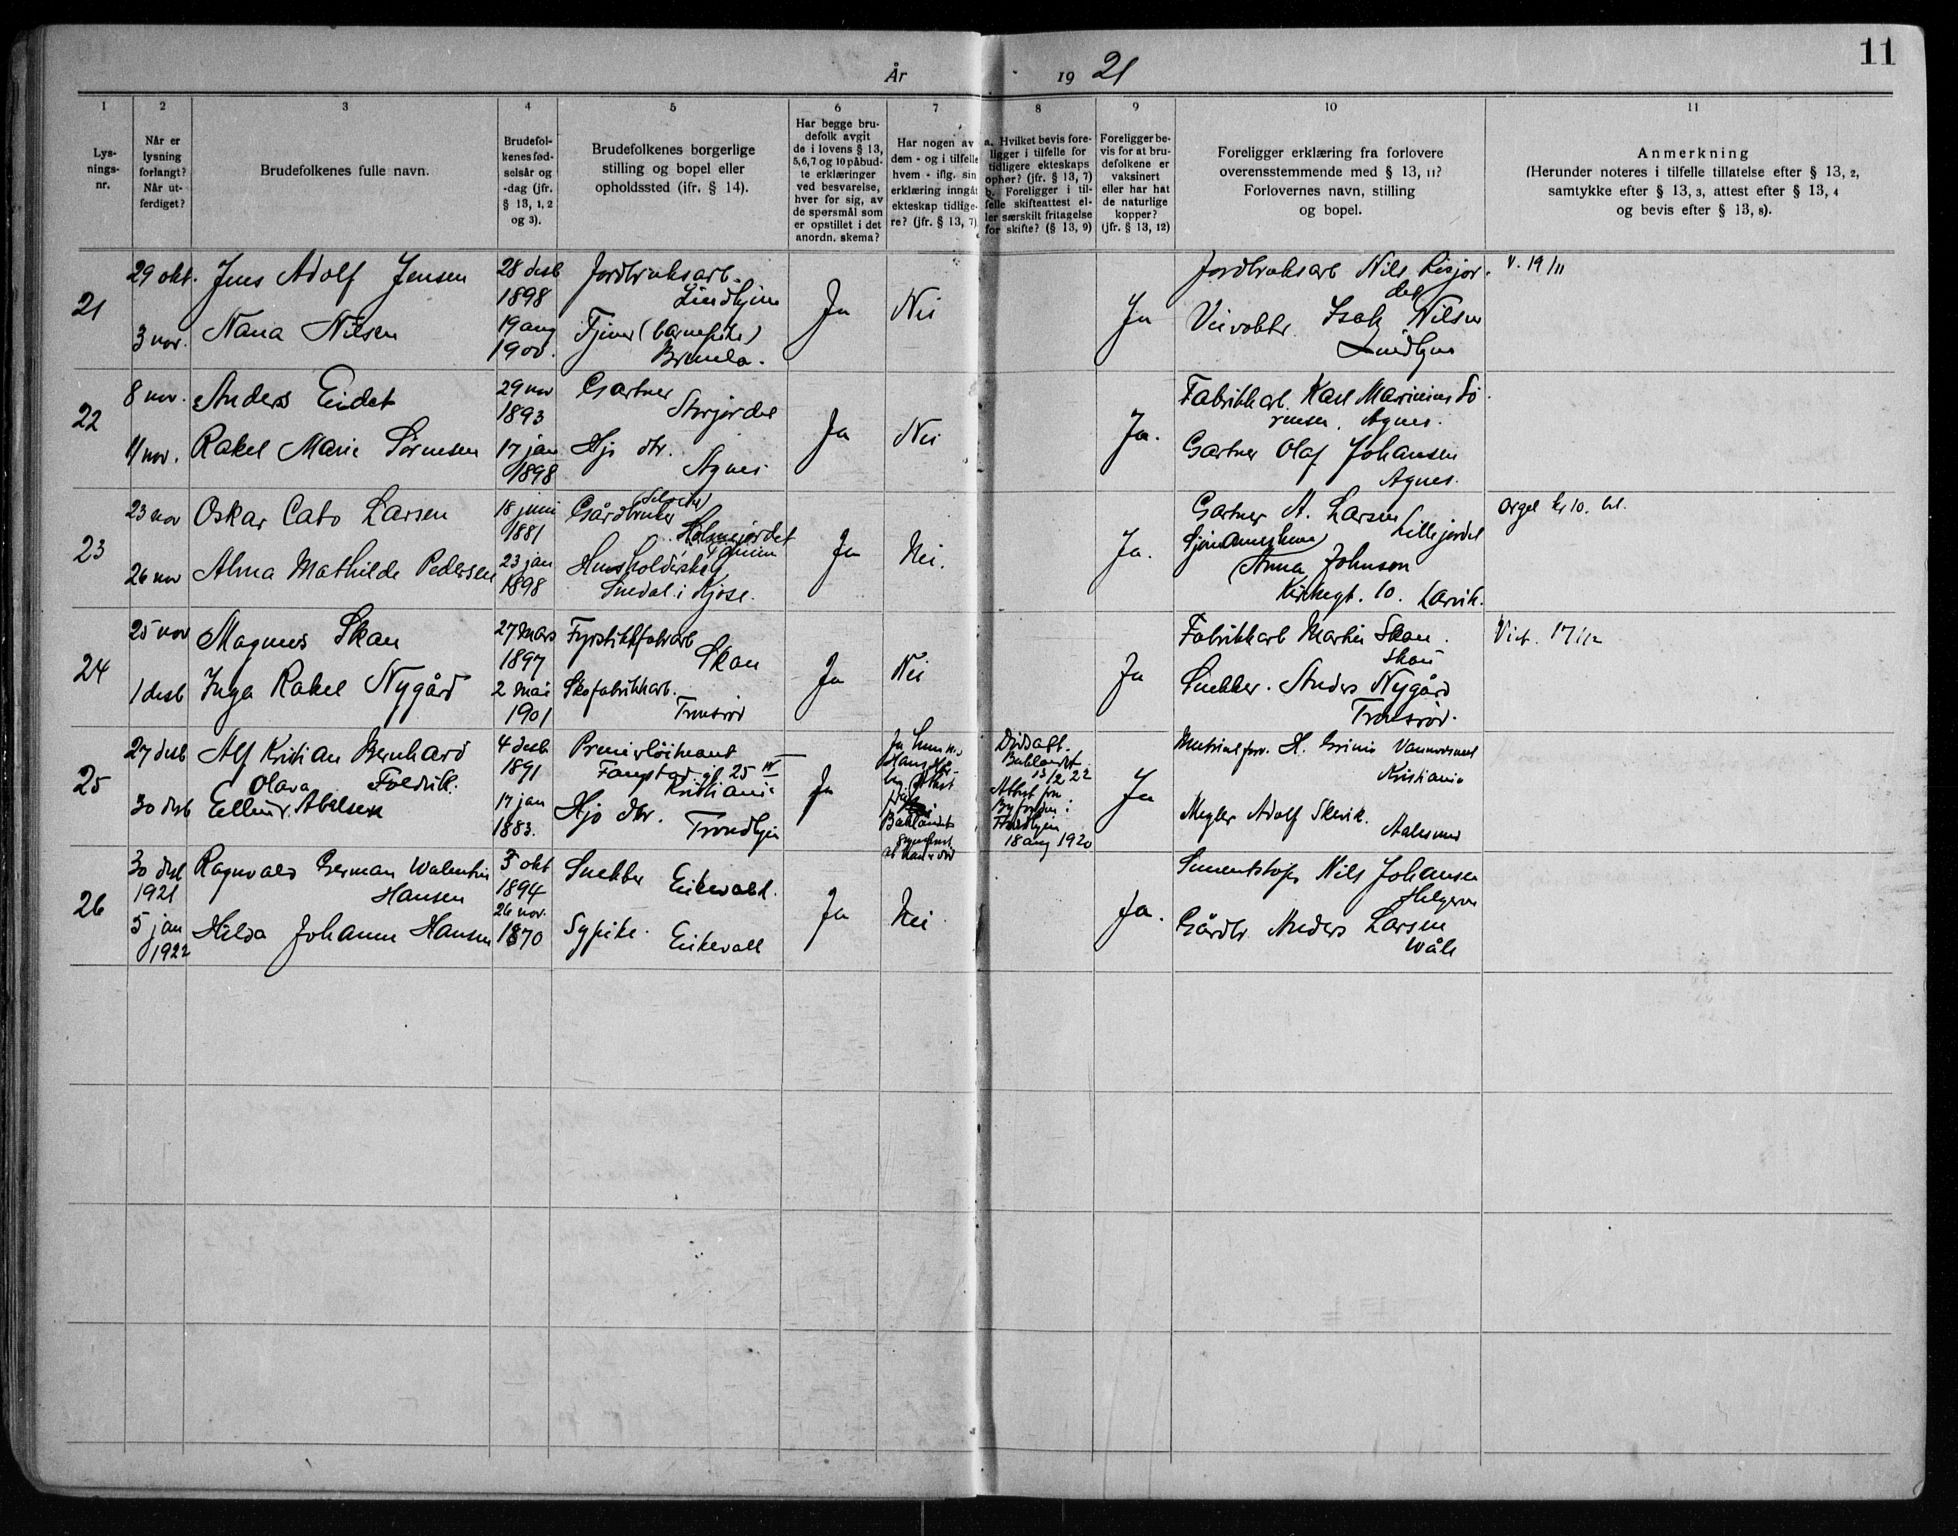 11
År 1921
1 2 3 4 5 6 7 8 9 10 11
Lys-
nings-
nr.
Når er
lysning
forlangt?
Når ut-
ferdiget?
Brudefolkenes fulle navn.
Brudefol-
kenes fød-
selsår og
-dag (jfr.
§ 13, 1, 2
og 3).
Brudefolkenes borgerlige
stilling og bopel eller
opholdssted (ifr. § 14).
Har begge bru-
defolk avgit
de i lovens § 13,
5,6,7 og 10 påbud-
te erklæringer
ved besvarelse,
hver for sig, av
de spørsmål som
er opstillet i det
anordn. skema?
Har nogen av
dem - og i tilfelle
hvem - iflg. sin
erklæring inngåt
ekteskap tidlige-
re? (jfr. § 13, 7)
a. Hvilket bevis fore-
ligger i tilfelle for
tidligere ekteskaps
ophør? (jfr. § 13, 7)
b. Foreligger i til-
felle skifteattest el-
ler særskilt fritagelse
for skifte? (§ 13, 9)
Foreligger be-
vis for at bru-
defolkene er
vaksinert
eller har hat
de naturlige
kopper?
(jfr. § 13, 12)
Foreligger erklæring fra forlovere
overensstemmende med § 13, 11?
Forlovernes navn, stilling
og bopel.
Anmerkning
(Herunder noteres i tilfelle tillatelse efter § 13, 2,
samtykke efter § 13, 3, attest efter § 13, 4
og bevis efter § 13, 8).
21
29 okt.
3 nov.
Jens Adolf Jensen
Nana Nilsen
28 desb
1898
19 aug
1900.
Jordbruksarb.
Lindhjem
Tjener (barnepike)
Brunla.
Ja
Nei
Ja
Jordbruksarb Nils Risjor-
det
Veivokter Isak Nilsen
Lindhjem
v. 19/11
22
8 nov.
11 nov.
Anders Eidet
Rakel Marie Sørensen
29 nov
1893
17 jan
1898
Gartner
Storjordet
Hjs dtr.
Agnes
Ja
Nei
Ja.
Fabrikkarb. Karl Marinius Sö-
rensen, Agnes.
Gartner Olaf Johansen
Agnes.
23
23 nov
26 nov
Oskar Cato Larsen
Alma Mathilde Pedersen
18 juni
1881
23 jan
1898
Gårdbruker
Holmejordet
Tanum
Husholderske
Snedal i Kjose.
Ja
Nei.
Ja.
Gartner A. Larsen
Lillejordet
Anna Johnson
Kirkegt. 10. Larvik.
Orgel kr 10. bt.
24
25 nov
1 desb
Magnus Skau
Inga Rakel Nygård
27 mars
1897
2 mai
1901
Fyrstikkfabrarb
Skau
Skofabrikkarb.
Tronsrød
Ja
Nei
Ja
Fabrikkarb Martin Skau.
Skau
Snekker. Anders Nygård
Tronsrød.
Vict. 17/12
25
27 desb
30 desb
Alf Kristian Bernhard
Olava Foldvik.
Ellen Abelsen
4 desb
1891
17 jan
1883.
Premierløitnant
25 IV
Kristiania
Hjs dtr.
Trondhjem
Ja
Ja hun
Baklandet
at han er død
Dødsatt.
Baklandet
13/2 22
Attest fra
Byfogden i
Trondhjem
18 aug 1920
Ja
H. Grini
Kristiania
Megler Adolf Skevik.
Aalesund
26
30 des
1921
5 jan
1922
Ragnvald Herman Walentin
Hansen
Hilda Johanne Hansen
3 okt
1894
26 nov.
1870
Snekker
Eikevald.
Sypike.
Eikevall
Ja
Nei
Ja.
Sementstøper Nils Johansen
Helgeroa
Gårdbr Anders Larsen
Wåle